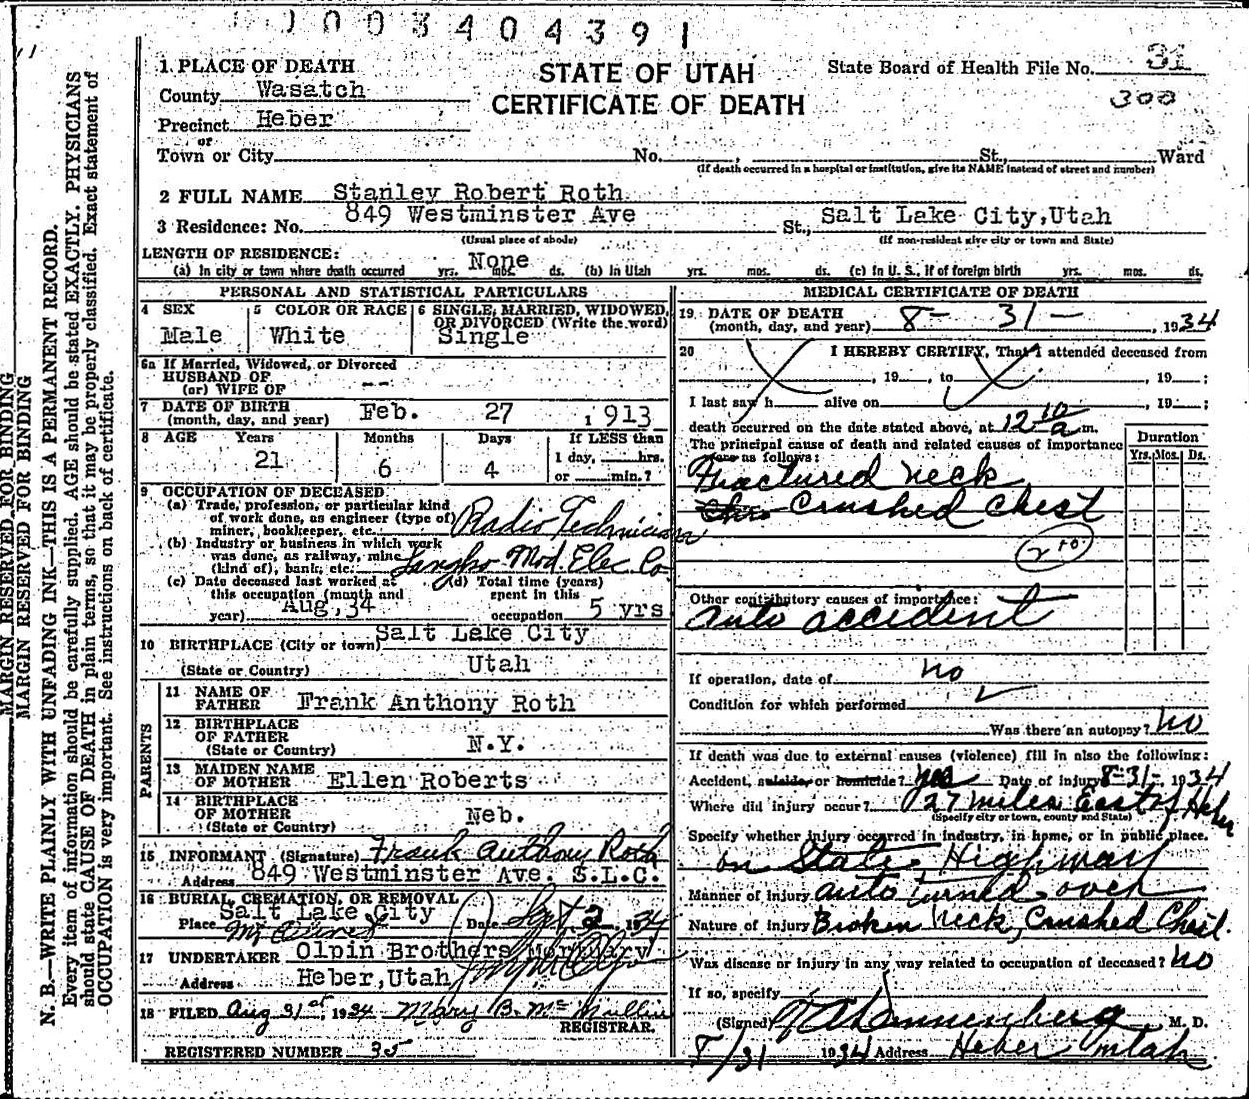 1003404391
STATE OF UTAH
CERTIFICATE OF DEATH
State Board of Health File No. 31
300
1. PLACE OF DEATH
County Wasatch
Precinct Heber
or
Town or City No. , St., Ward
(If death occurred in a hospital or institution, give its NAME instead of street and number)
2 FULL NAME Stanley Robert Roth
3 Residence: No. 849 Westminster Ave St., Salt Lake City, Utah
(Usual place of abode) (If non-resident give city or town and State)
LENGTH OF RESIDENCE: None
(a) In city or town where death occurred yrs. mos. ds. (b) In Utah yrs. mos. ds. (c) In U. S., if of foreign birth yrs. mos. ds.
PERSONAL AND STATISTICAL PARTICULARS
4 SEX 5 COLOR OR RACE 6 SINGLE, MARRIED, WIDOWED, OR DIVORCED (Write the word)
Male White Single
6a If Married, Widowed, or Divorced
HUSBAND OF
(or) WIFE OF --
7 DATE OF BIRTH
(month, day, and year) Feb. 27 , 1913
8 AGE Years Months Days If LESS than
1 day, hrs.
21 6 4 or min.?
9 OCCUPATION OF DECEASED
(a) Trade, profession, or particular kind
of work done, as engineer (type of)
miner, bookkeeper, etc. Radio Technician
(b) Industry or business in which work
was done, as railway, mine
(kind of), bank, etc. Mod. Elec. Co
(c) Date deceased last worked at
this occupation (month and
year) Aug, 34
(d) Total time (years)
spent in this
occupation 5 yrs
10 BIRTHPLACE (City or town) Salt Lake City
(State or Country) Utah
PARENTS
11 NAME OF
FATHER Frank Anthony Roth
12 BIRTHPLACE
OF FATHER
(State or Country) N.Y.
13 MAIDEN NAME
OF MOTHER Ellen Roberts
14 BIRTHPLACE
OF MOTHER
(State or Country) Neb.
15 INFORMANT (Signature) Frank Anthony Roth
Address 849 Westminster Ave. S.L.C.
16 BURIAL, CREMATION, OR REMOVAL
Place Salt Lake City Date Sept 2 1934
Mt
17 UNDERTAKER Olpin Brothers Mortuary
Address Heber, Utah
18 FILED Aug 31st, 1934 Mary B. McMullin
REGISTRAR.
REGISTERED NUMBER 35
MEDICAL CERTIFICATE OF DEATH
19 DATE OF DEATH
(month, day, and year) 8 - 31 - , 1934
20 I HEREBY CERTIFY, That I attended deceased from
, 19 , to , 19 ;
I last saw h alive on , 19 ;
death occurred on the date stated above, at 12 10 a m.
The principal cause of death and related causes of importance
were as follows:
Duration
Yrs. Mos. Ds.
Fractured neck
Crushed Chest
210
Other contributory causes of importance:
auto accident
If operation, date of no
Condition for which performed
Was there an autopsy? No
If death was due to external causes (violence) fill in also the following:
Accident, suicide, or homicide? Yes Date of injury 8-31- 1934
Where did injury occur? 27 miles East of Heber
(Specify city or town, county and State)
Specify whether injury occurred in industry, in home, or in public place.
on State Highway
Manner of injury auto turned over
Nature of injury Broken Neck, Crushed Chest.
Was disease or injury in any way related to occupation of deceased? No
If so, specify
(Signed) Dannenberg M. D.
8/31 1934 Address Heber Utah
MARGIN RESERVED FOR BINDING
MARGIN RESERVED FOR BINDING
N. B.—WRITE PLAINLY WITH UNFADING INK—THIS IS A PERMANENT RECORD.
Every item of information should be carefully supplied. AGE should be stated EXACTLY. PHYSICIANS
should state CAUSE OF DEATH in plain terms, so that it may be properly classified. Exact statement of
OCCUPATION is very important. See instructions on back of certificate.